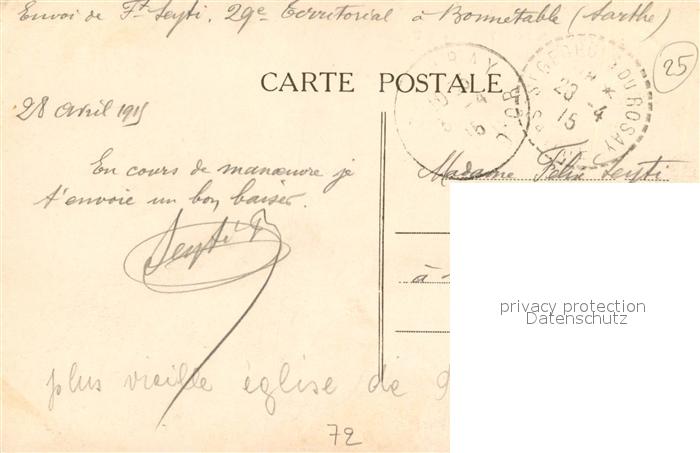 Envoi de Ft Seyti. 29e Territorial à Bonnétable (Sarthe)
25
CARTE POSTALE
ST GEORGES DU ROSAY
23
15 4
28 avril 1915
En cours de manœuvre je
t'envoie un bon baiser.
Seyti F
Madame Félix Seyti
à
privacy protection
Datenschutz
plus vieille église de
72